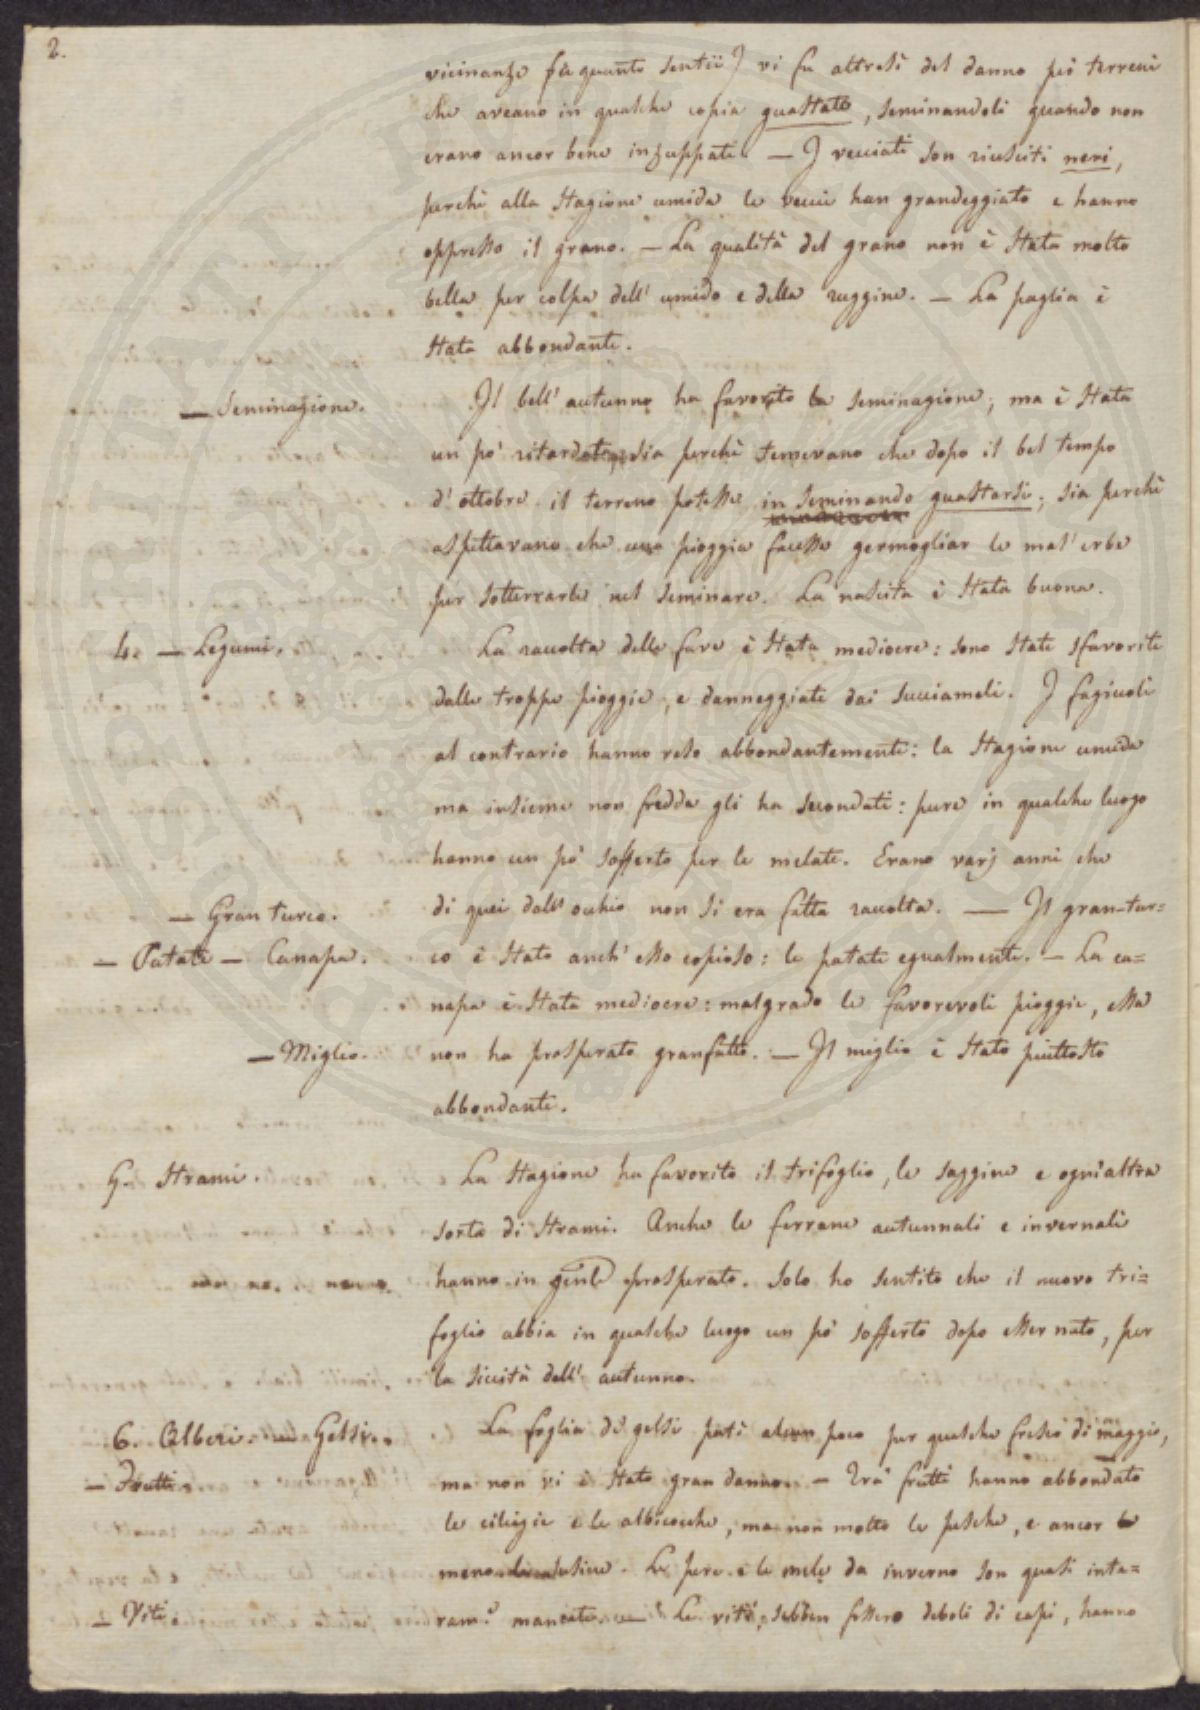 2.
vicinanze (a quanto sentii) vi fu altresì del danno pei terreni
che aveano in qualche copia guastato, seminandoli quando non
erano ancor bene inzuppati. — I vecciati son riusciti neri,
perchè alla stagione umida le veccie han grandeggiato e hanno
oppresso il grano. — La qualità del grano non è stata molto
bella per colpa dell' umido e della ruggine. — La paglia è
stata abbondante.
— Seminagione.
Il bell' autunno ha favorito la seminagione; ma è stata
un pò ritardata, sia perchè temevano che dopo il bel tempo
d' ottobre il terreno potesse in seminando guastarsi; sia perchè
aspettavano che una pioggia facesse germogliar le mal' erbe
per sotterrarle nel seminare. La nascita è stata buona.
4. — Legumi.
La raccolta delle fave è stata mediocre: sono state sfavorite
dalle troppe pioggie, e danneggiate dai succiameli. I fagiuoli
al contrario hanno reso abbondantemente: la stagione umida
ma insieme non fredda gli ha secondati: pure in qualche luogo
hanno un pò sofferto per le melate. Erano varj anni che
di quei dall' occhio non si era fatta raccolta. — Il gran-tur=
— Gran turco.
co è stato anch' esso copioso: le patate egualmente. — La ca=
— Patate — Canapa.
napa è stata mediocre: malgrado le favorevoli pioggie, essa
non ha prosperato granfatto. — Il miglio è stato piuttosto
— Miglio.
abbondante.
5. Strami.
La stagione ha favorito il trifoglio, le saggine e ogni altra
sorta di strami. Anche le ferrane autunnali e invernali
hanno in genle prosperato. Solo ho sentito che il nuovo tri=
foglio abbia in qualche luogo un pò sofferto dopo esser nato, per
la siccità dell' autunno.
6. Alberi. — Gelsi.
La foglia de' gelsi patì alcun poco per qualche fresco di maggio,
ma non vi è stato gran danno. — Tra' frutti hanno abbondato
— Frutti.
le ciliegie e le albicocche, ma non molto le pesche, e ancor
meno le susine. Le pere e le mele da inverno son quasi inte=
ram.e mancate. — Le viti, sebben fossero deboli di capi, hanno
— Viti.